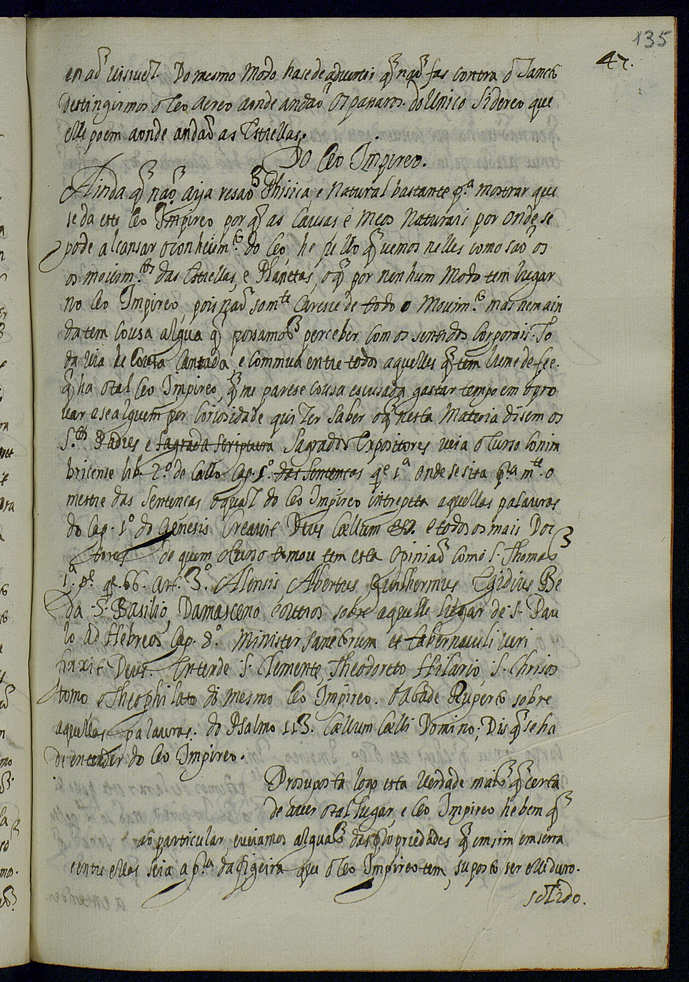 135
47.
en aõ visivel. Do mesmo Modo hase de advertir q̃ naõ fas contra o Sancto
destingirmos o Ceo aereo aonde andaõ os passaros. do Unico Sidereo que
elle poem aonde andaõ as Estrellas.
Do Ceo Impireo.
Ainda q̃ naõ aija resaõ Phisica e Natural bastante p.ª mostrar que
se da este Ceo Impireo por q̃ as Causas e Meos Naturais por onde se
pode alcansar o conhecim.to do Ceo he q̃ vemos nelles como saõ os
os movim.tos das Estrellas, e Planetas, o q̃ por nenhum Modo tem lugar
no Ceo Impireo pois naõ som.te Caresce de todo o Movim.to mas nem ain
da tem Cousa algua q̃ possamos perceber com os sentidos Corporais. To
da via he Cousa Cantada, e commua entre todos aquelles q̃ tem lume de fee.
q̃ ha o tal Ceo Impireo, q̃ me parese cousa escusada gastar tempo em o pro
var e se alguem por Coriosidade quizer saber o q̃ nesta Materia disem os
S.tos Padres e Sagrada Scriptura Sagrados Expositores veia o Curso Conim
bricense lib. 2.º de Cœllo Cap. 1.º das Sentencas q. 1.ª onde se sita o
mestre das Sentencas o qual do Ceo Impireo intrepeta aquellas palavras
do Cap. 1.º do Genesis Creavit Deus Cœllum e todos os mais Doc
tores de quem o Curso tomou tem esta Opiniaõ como S. Thomas
1.ª p.e q. 66. art. 3.º Alensis Albertus Guilhermus Egidius Be
da S. Basilio Damasceno e outros sobre aquelle lugar de S. Pau
lo Ad Hebreos Cap. 8.º Minister Sanctorum et tabernaculi veri
fixit Deus. Entende S. Clemente Theodoreto Hilario S. Chrisos
tomo e Theophilato do mesmo Ceo Impireo. O abade Ruperto sobre
aquellas palauras. do Psalmo 113. Cœllum Cœlli Domino. Dis q̃ se ha
de entender do Ceo Impireo.
Prosuposta logo esta verdade mais q̃ certa
de aver o tal lugar e Ceo Impireo he bem q̃
em particular veiamos alguas das propriedades q̃ em sim emserra
e entre ellas seia a p.ra da figeira que o Ceo Impireo tem, suposto ser elle duro.
solido.